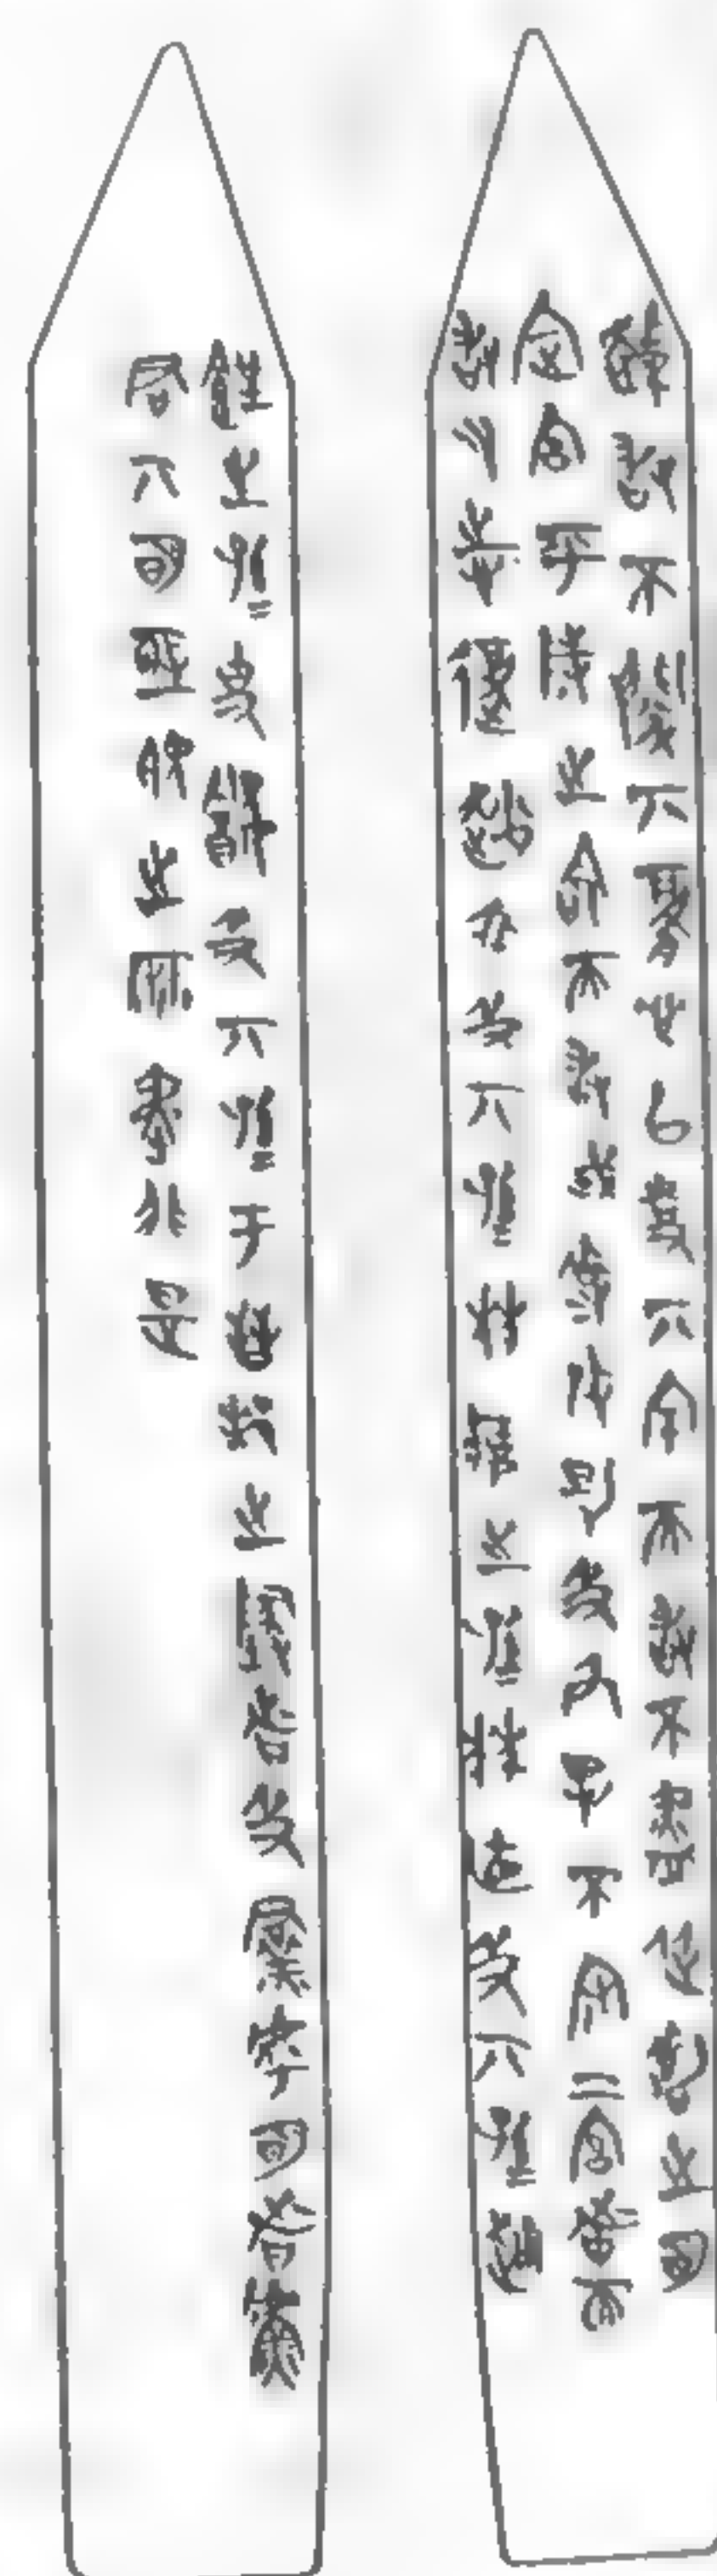 敢不閈其腹心以事其宗而敢不盡從嘉之明
定宮平畤之命而敢或專改助及奐卑不守二宮者而
敢又志復趙尼及其子孫兟疵之子孫兟直及其子孫趨
䤾之子孫史醜及其子孫于晉邦之地者及群虖明者虘
君其明亟視之麻夷非是